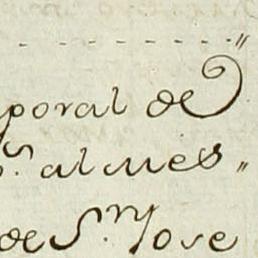 - - - - - - - - - - - "
poral de
s. al mes "
de S.n Jose